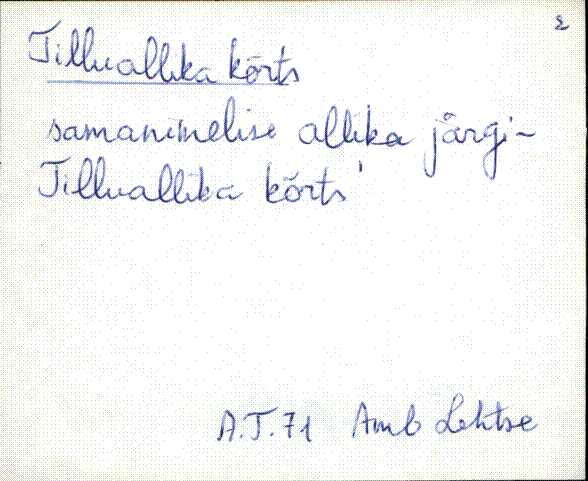 2
Tilluallika kõrts
samanimelise allika järgi -
Tilluallika kõrts'
A.T.71 Amb Lehtse